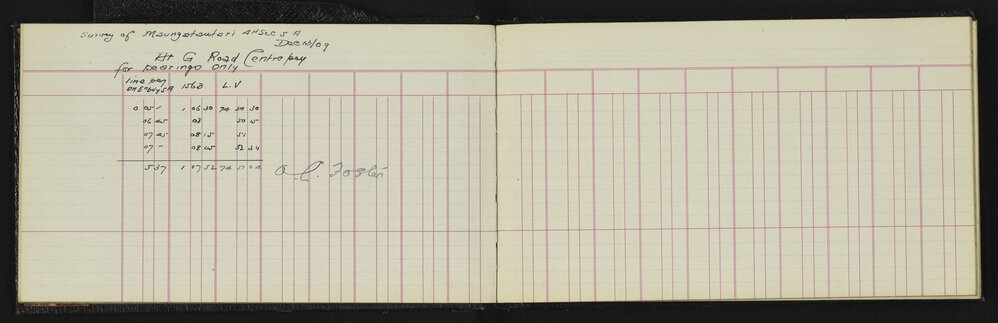 Survey of Maungatautari 4H Sec 5 A
Dec 13/09
At G Road Centre peg
for bearings only
line peg 1563 L.V
on E Bdy 5A
0 05 1 06 30 74 50 30
06 45 08 50 15
07 45 08 15 51
07 – 08 45 52 30
5 37 1 07 52 74 51 04
A. C. Foster